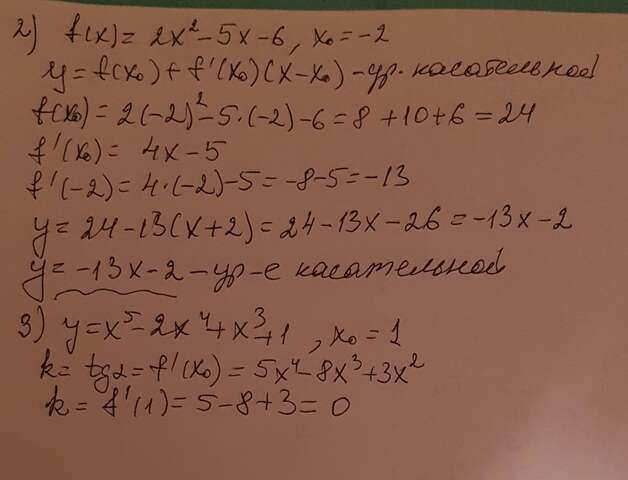 2) f(x) = 2x² - 5x - 6, x₀ = -2
y = f(x₀) + f'(x₀)(x - x₀) - ур. касательной
f(x₀) = 2(-2)² - 5·(-2) - 6 = 8 + 10 + 6 = 24
f'(x₀) = 4x - 5
f'(-2) = 4·(-2) - 5 = -8 - 5 = -13
y = 24 - 13(x + 2) = 24 - 13x - 26 = -13x - 2
y = -13x - 2 - ур-е касательной
3) y = x⁵ - 2x⁴ + x³ + 1, x₀ = 1
k = tgα = f'(x₀) = 5x⁴ - 8x³ + 3x²
k = f'(1) = 5 - 8 + 3 = 0